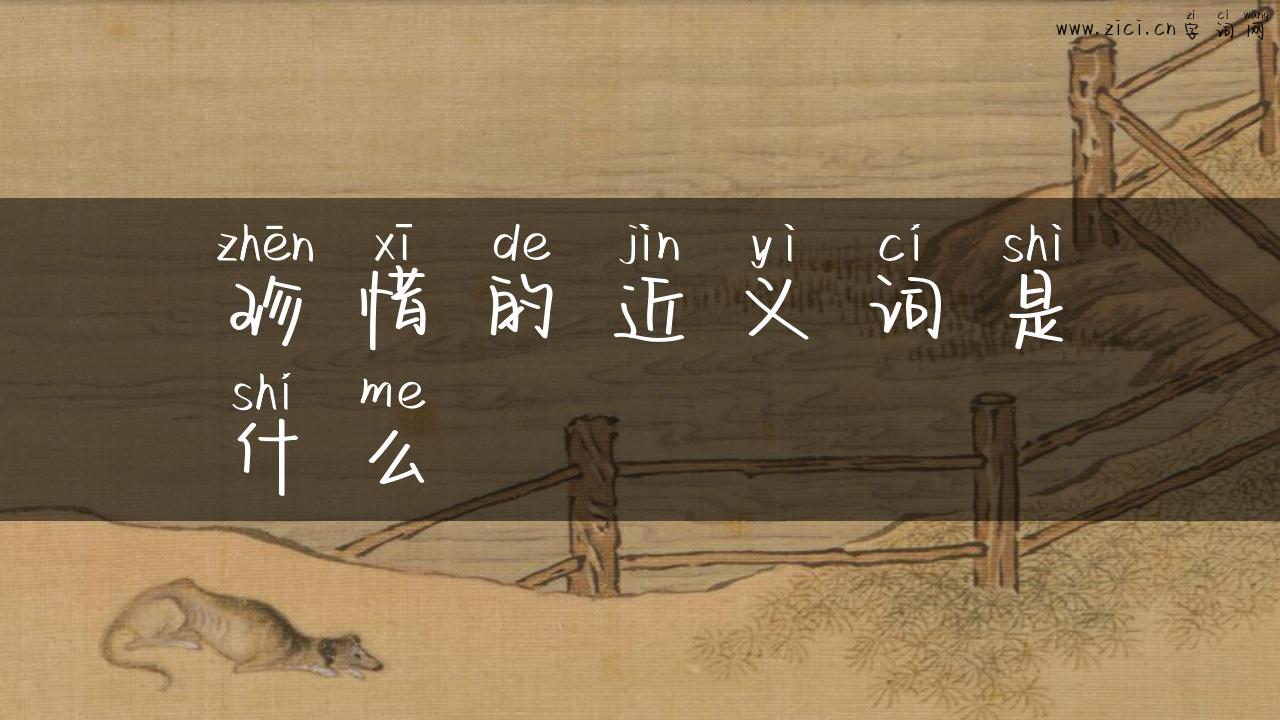 zi ci wang
www.zici.cn 字词网
zhēn xī de jìn yì cí shì
珍惜的近义词是
shí me
什么